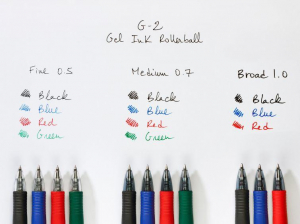 G-2
Gel Ink Rollerball
Fine 0.5
Black
Blue
Red
Green
Medium 0.7
Black
Blue
Red
Green
Broad 1.0
Black
Blue
Red